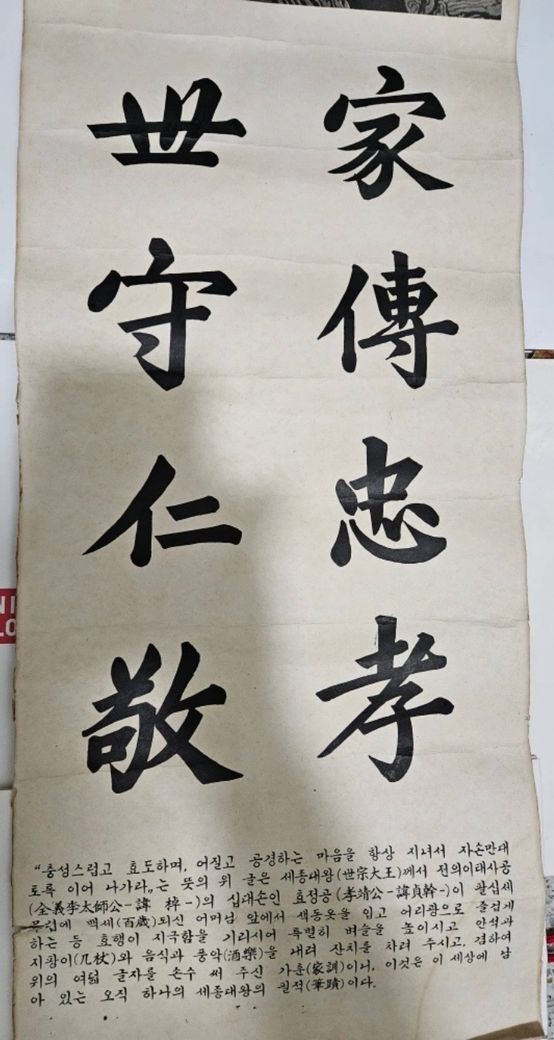 家傳忠孝
世守仁敬
“충성스럽고 효도하며, 어질고 공경하는 마음을 항상 지녀서 자손만대
토록 이어 나가라„는 뜻의 위 글은 세종대왕(世宗大王)께서 전의이태사공
(全義李太師公-諱 棹-)의 십대손인 효정공(孝靖公-諱貞幹-)이 팔십세
문턱에 백세(百歲)되신 어머님 앞에서 색동옷을 입고 어리광으로 즐겁게
하는 등 효행이 지극함을 기리시어 특별히 벼슬을 높이시고 안석과
지팡이(几杖)와 음식과 풍악(酒樂)을 내려 잔치를 차려 주시고, 겸하여
위의 여덟 글자를 손수 써 주신 가훈(家訓)이니, 이것은 이 세상에 남
아 있는 오직 하나의 세종대왕의 필적(筆蹟)이다.